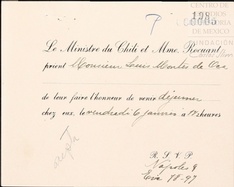 1985
CENTRO DE
ESTUDIOS
DE HISTORIA
DE MEXICO
FUNDACIÓN
P
Le Ministre du Chili et Mme. Rocuant
prient Monsieur Louis Montes de Oca
de leur faire l'honneur de venir déjeuner
chez eux, le vendredi 6 janvier à heures
R. S. V. P
Nápoles 9
Eric 18-97